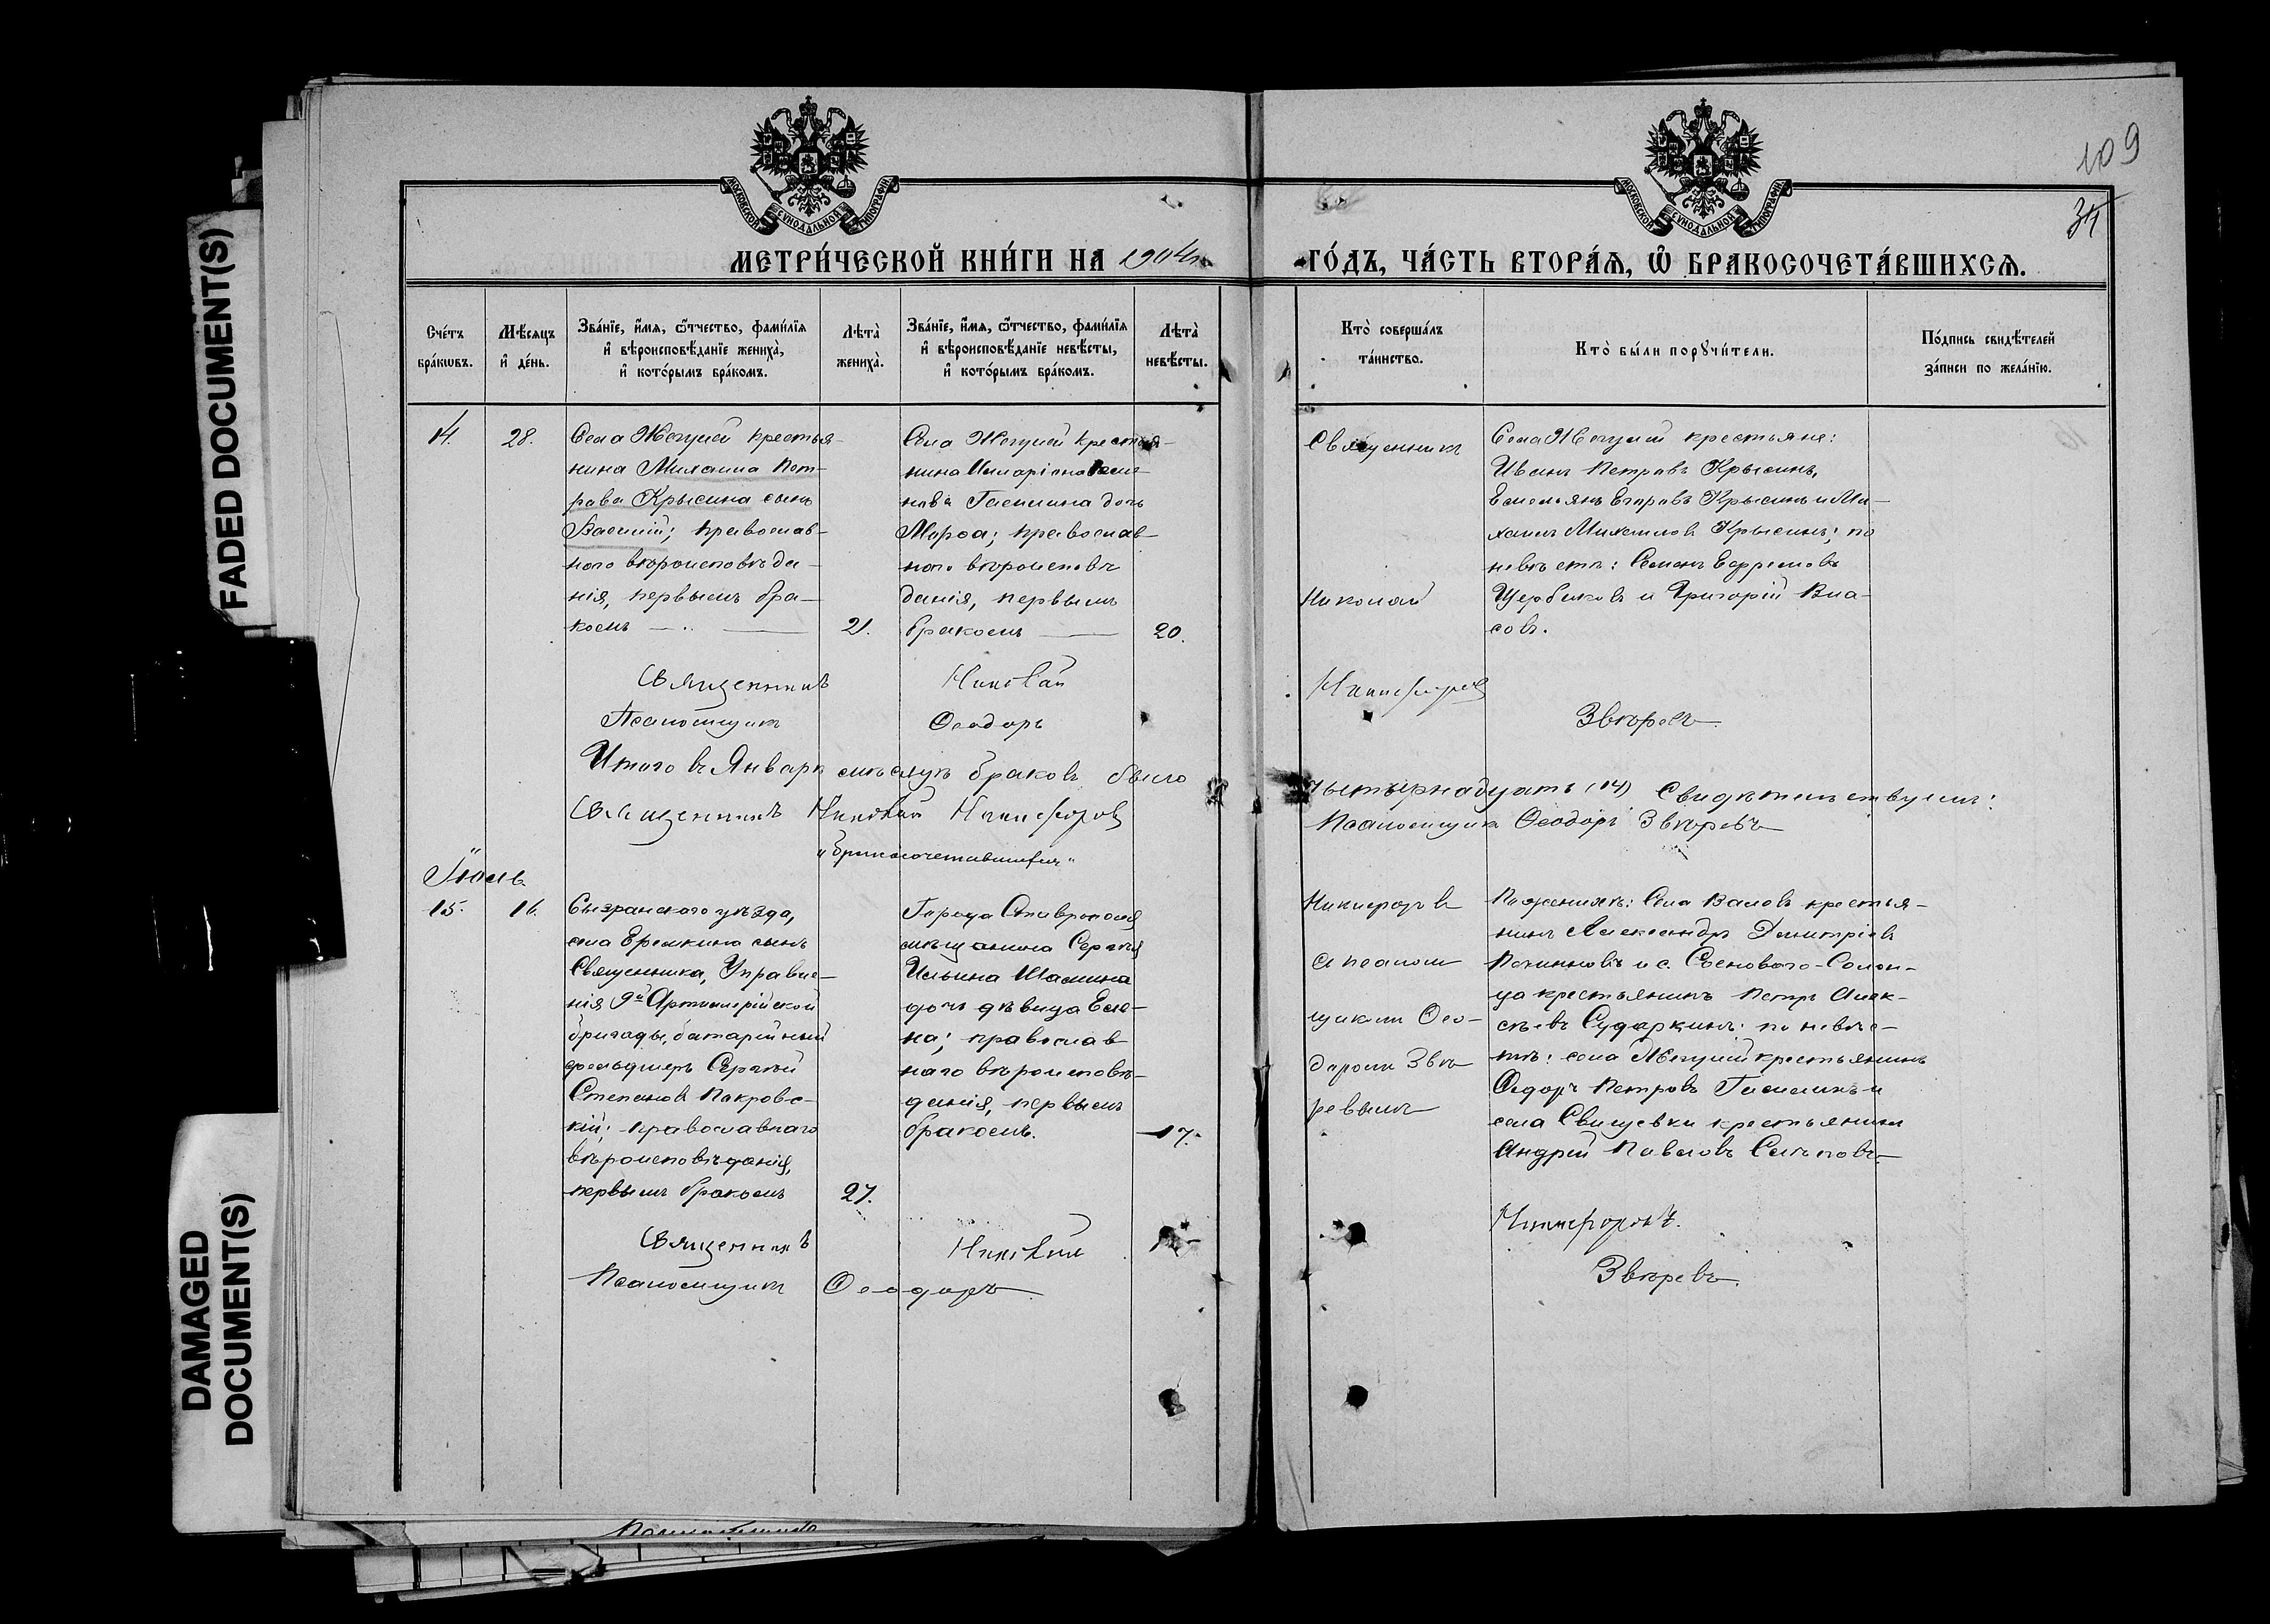 FADED DOCUMENT(S)
DAMAGED
DOCUMENT(S)
109
34
МОСКОВСКОЙ СУНОДАЛЬНОЙ ТИПОГРАФІИ
МОСКОВСКОЙ СУНОДАЛЬНОЙ ТИПОГРАФІИ
МЕТРИ́ЧЕСКОЙ КНИ́ГИ НА 1904
ГО́ДЪ, ЧА́СТЬ ВТОРА́Ѧ, Ѡ҆ БРАКОСОЧЕТА́ВШИХСѦ.
Сче́тъ
бра́кѡвъ.
Мѣ́сяцъ
и҆ де́нь.
Зва́нїе, и҆́мѧ, ѻ҆́тчество, фами́лїѧ
и҆ вѣроисповѣ́данїе жениха̀,
и҆ кото́рымъ бра́комъ.
Лѣта̀
жениха̀.
Зва́нїе, и҆́мѧ, ѻ҆́тчество, фами́лїѧ
и҆ вѣроисповѣ́данїе невѣ́сты,
и҆ кото́рымъ бра́комъ.
Лѣта̀
невѣ́сты.
Кто̀ соверша́лъ
та́инство.
Кто̀ бы́ли порꙋчи́тели.
По́дпись свидѣ́телей
за́писи по жела́нїю.
14.
28.
Села Жегулей крестья-
нина Михаила Пет-
рова Крысина сынъ
Василій; православ-
ного вѣроисповѣда-
нія, первымъ бра-
комъ
21.
Села Жегулей крестья-
нина Иларіона
нова Гасилина дочь
Марфа; православ-
ного вѣроисповѣ
данія, первымъ
бракомъ
20.
Священникъ
Николай
Никифоров
Села Жегулей крестьяне:
Иванъ Петровъ Крысинъ,
Емельянъ Егоровъ Крысинъ и Ми-
хаилъ Михаиловъ Крысинъ; по
невѣстѣ: Семенъ Ефремовъ
Щербаковъ и Григорій Вла-
совъ.
Священникъ Николай
Псаломщикъ Ѳеодоръ Звѣревъ
Итого въ Январѣ мѣсяцѣ браковъ было четырнадцать (14) Свидѣтельствуемъ:
Священникъ Николай Никифоровъ Псаломщикъ Ѳеодоръ Звѣревъ
„бракосочетавшихся“
Іюль
15.
16.
Сызранского уѣзда,
села Еремкина сынъ
Священника, Управле-
нія 9й Артиллерійской
бригады, батарейный
фельдшеръ Сергѣй
Степановъ Покровс-
кій; православнаго
вѣроисповѣданія,
первымъ бракомъ
27.
Города Ставрополя
мѣщанина Сергѣя
Ильина Шамина
дочь дѣвица Еле-
на; православ
наго вѣроисповѣ-
данія, первымъ
бракомъ.
17.
Никифоровъ
с псалом
щикомъ Ѳео-
доромъ Звѣ
ревымъ
По женихѣ: Села Валовъ крестья-
нинъ Александръ Димитріевъ
и с. Соснового-Солон-
ца крестьянинъ Петръ Алек-
сѣевъ Сударкинъ: по невѣс-
тѣ: села Жегулей крестьянинъ
Ѳедоръ Петровъ Гасилинъ и
села Свищевки крестьянинъ
Андрей Павловъ
Священникъ Николай Никифоровъ.
Псаломщикъ Ѳеодоръ Звѣревъ.